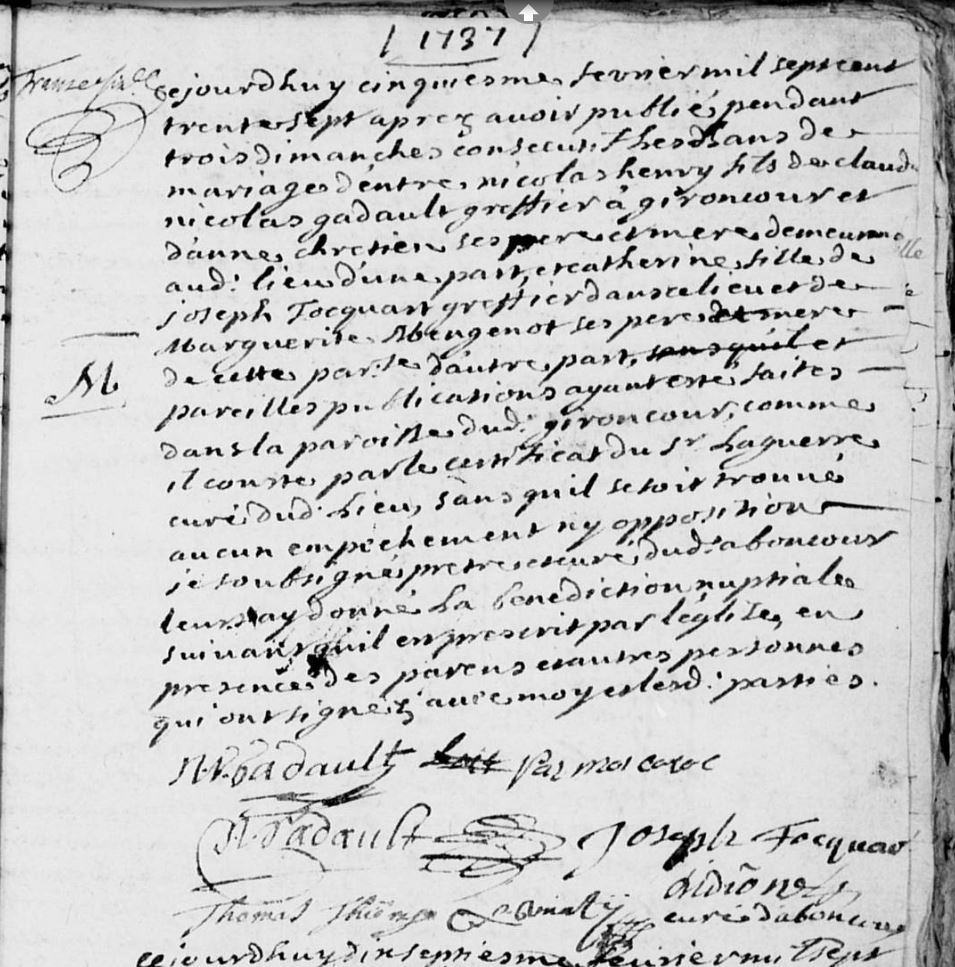 ( 1737 )
cejourdhuy cinquiesme fevrier mil sept cent
trente sept aprez avoir publié pendant
trois dimanches consecutifs les bans de
mariage d'entre nicolas henry fils de claude
nicolas gadault greffier à gironcour et
d'anne chretien ses pere et mere demeurans
aud: lieu d'une part, et catherine fille de
joseph Tocquart greffier dans ce lieu et de
Marguerite Mengenot ses pere et mere
de cette par:se d'autre part, sans quil et
pareilles publications ayant esté faites
dans la paroisse dud: gironcour, comme
il conste par le certificat du Sr Laguerre
curé dud: Lieu, sans quil se soit trouvé
aucun empechement ny opposition
je soubsigné pretre et curé dud: aboncour
leurs ay donné La benediction nuptiale
suivant quil est prescrit par l'église, en
presence des parens et autres personnes
qui ont signez avec moy et lesd: parties.
M
N gadault par mos
N. Gadault Joseph Tocquar
Thomas
curé d'aboncour
cejourdhuy dix septiesme fevrier mil sept